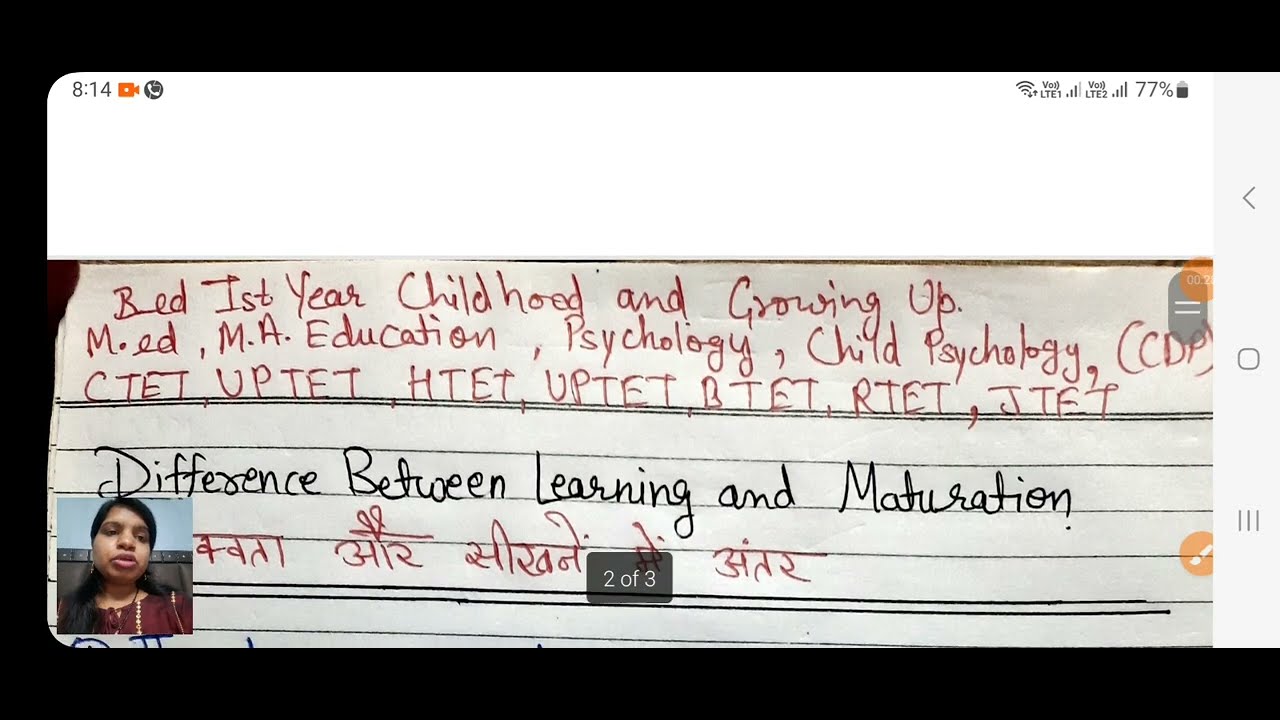 8:14
Vo)) LTE1 Vo)) LTE2 77%
Bed Ist Year Childhood and Growing Up.
M.ed, M.A. Education, Psychology, Child Psychology, (CDP)
CTET, UPTET, HTET, UPTET, BTET, RTET, JTET
Difference Between Learning and Maturation
और सीखनें में अंतर
2 of 3